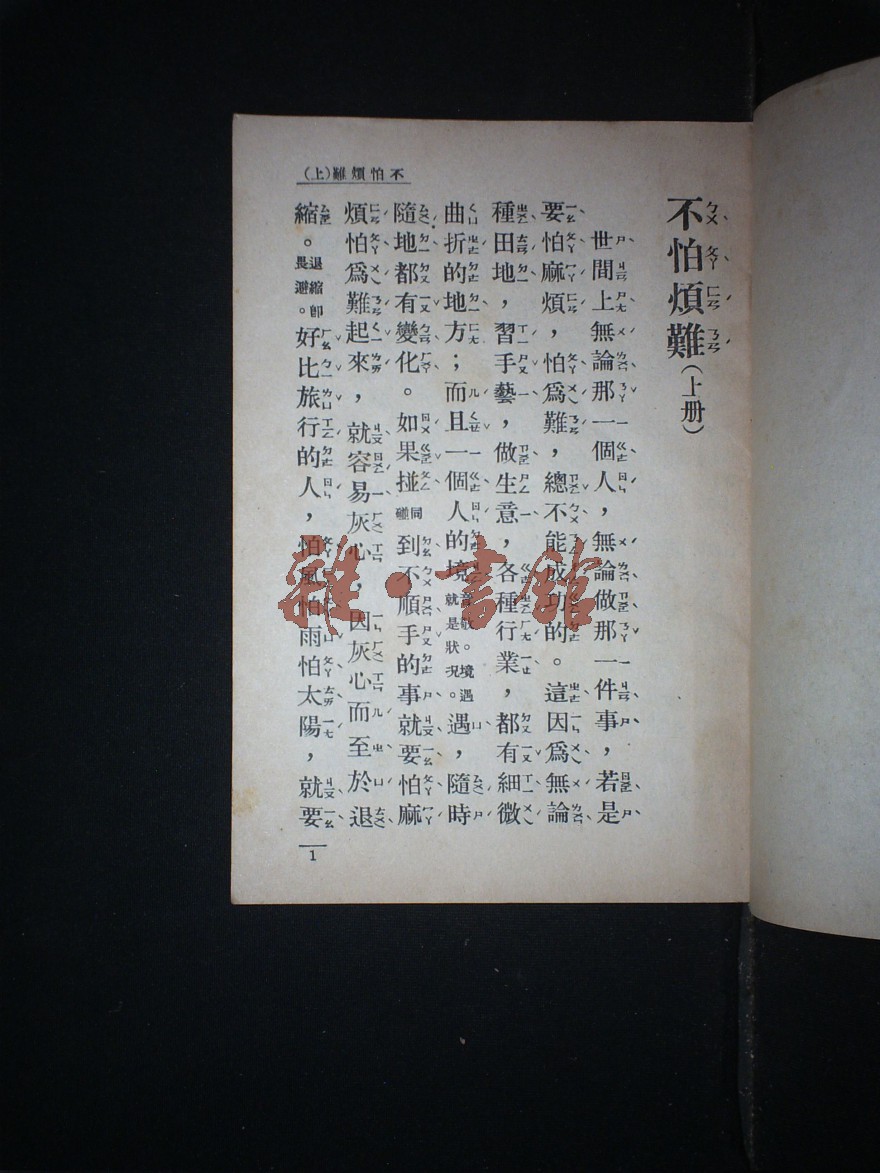 不怕煩難(上)
不怕煩難(上册)
世間上無論那一個人，無論做那一件事，若是
要怕麻煩，怕爲難，總不能成功的。這因爲無論
種田地，習手藝，做生意，各種行業，都有細微
曲折的地方；而且一個人的境音敬。境遇就是狀況。遇，隨時
隨地都有變化。如果掽同碰到不順手的事就要怕麻
煩怕爲難起來，就容易灰心，因灰心而至於退
縮。退縮卽畏避。好比旅行的人，怕風怕雨怕太陽，就要
1
雜·書館